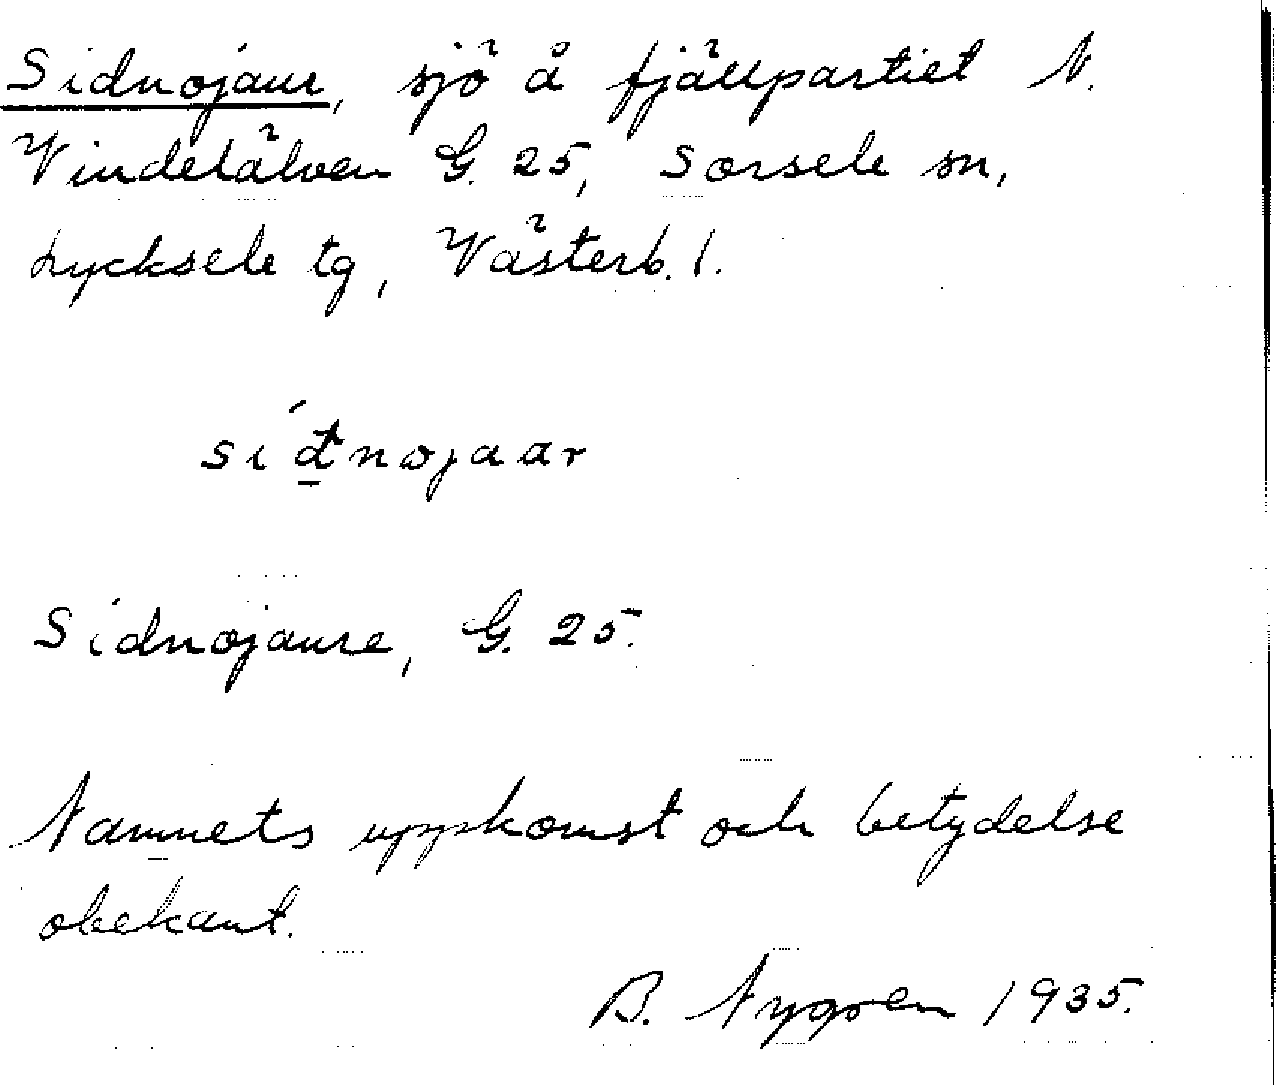 Sidnojaur, sjö å fjällpartiet N.
Vindelälven G. 25, Sorsele sn,
Lycksele tg, Västerb. l.
síđ̱nojaar
Sidnojaure, G. 25.
Namnets uppkomst och betydelse
obekant.
B. Nygren 1935.